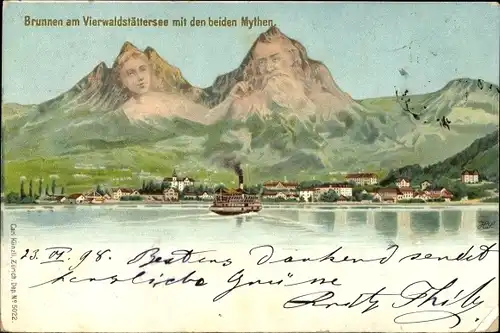 Brunnen am Vierwaldstättersee mit den beiden Mythen.
23. VI. 98. Bestens dankend sendet
herzliche Grüsse
Carl Künzli, Zürich Dep. Nº 5022